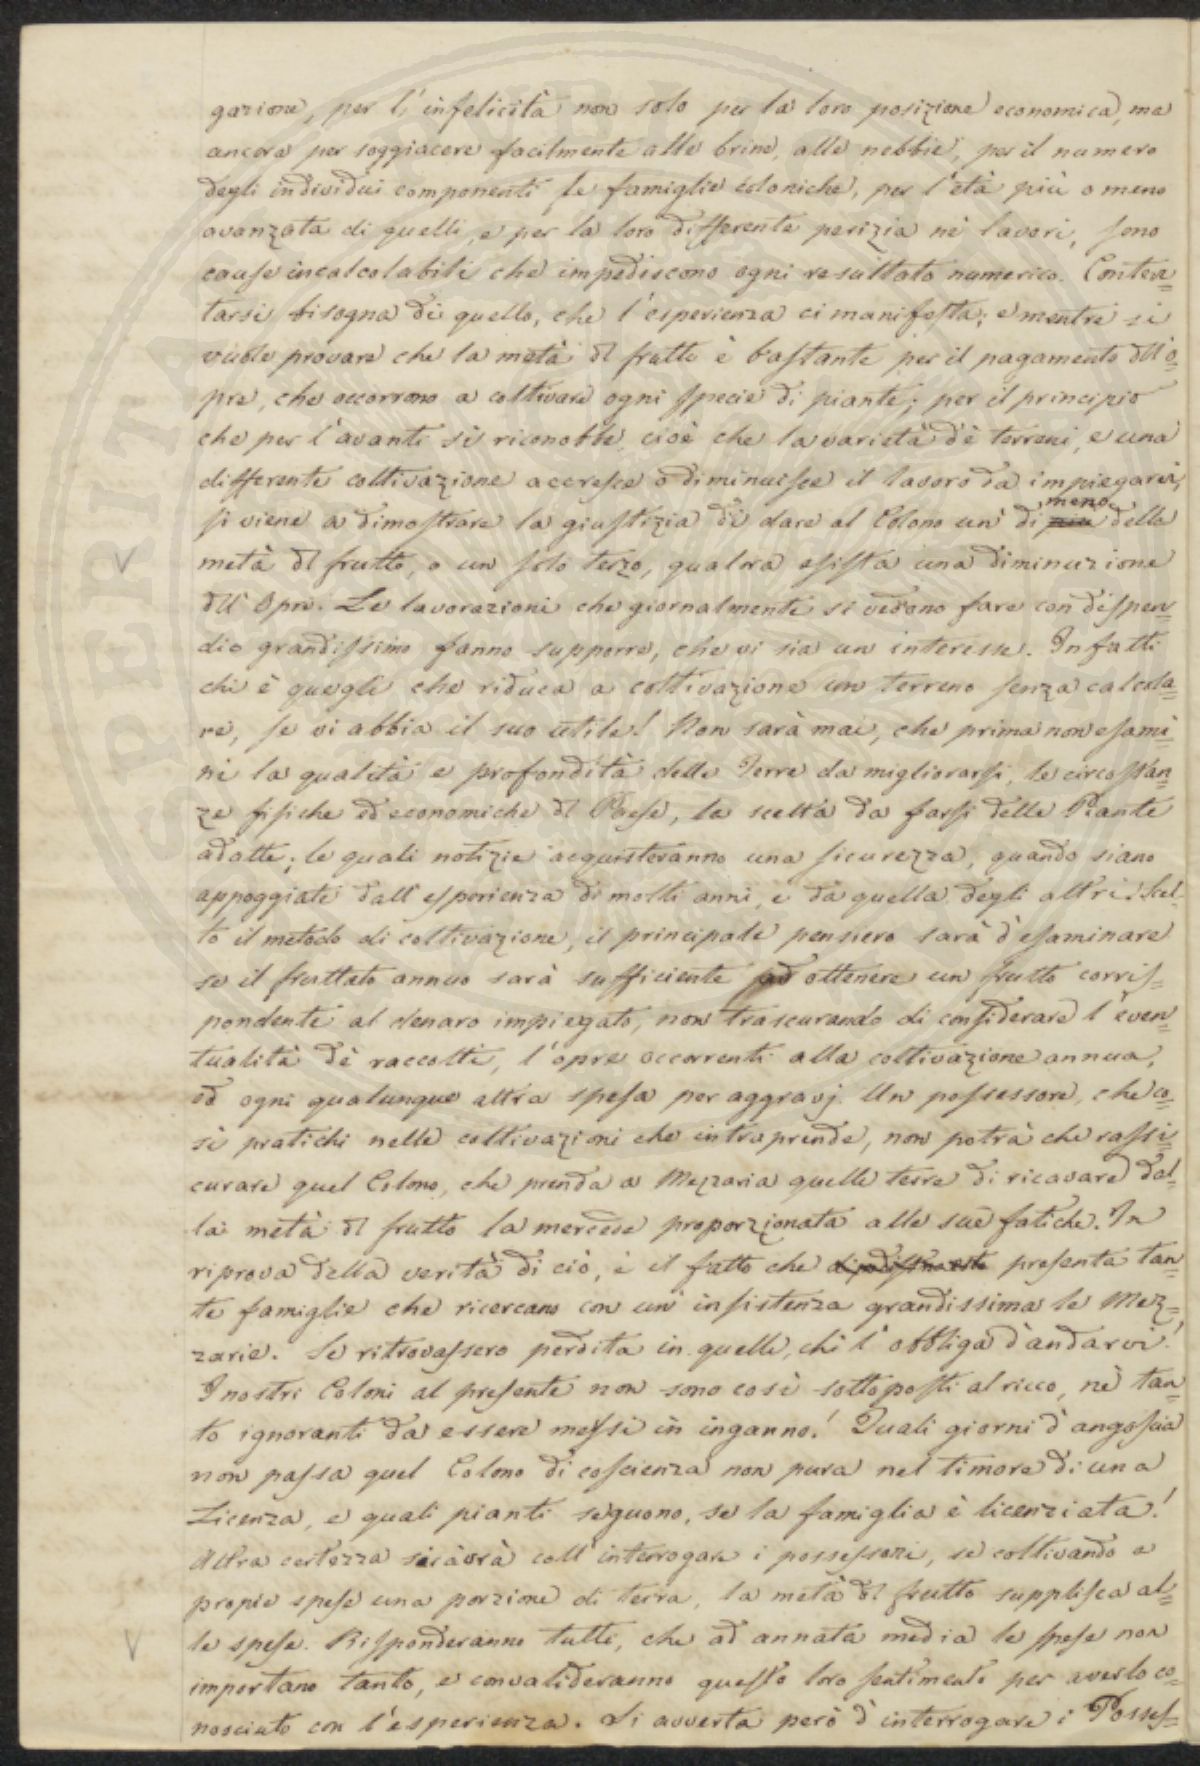 gazione, per l'infelicità non solo per la loro posizione economica, ma
ancora per soggiacere facilmente alle brine, alle nebbie, per il numero
degli individui componenti le famiglie coloniche, per l'età più o meno
avanzata di quelli, e per la loro differente perizia nè lavori, sono
cause incalcolabili che impediscono ogni resultato numerico. Conten=
tarsi bisogna di quello, che l'esperienza ci manifesta; e mentre si
vuole provare che la metà dl frutto è bastante per il pagamento dll'o=
pre, che occorrono a coltivare ogni specie di piante; per il principio
che per l'avanti si riconobbe, cioè che la varietà dè terreni, e una
differente coltivazione accresce o diminuisce il lavoro da impiegarvi,
si viene a dimostrare la giustizia di dare al Colono un di più meno della
metà dl frutto, o un solo terzo, qualora esista una diminuzione
dll'Opre. Le lavorazioni che giornalmente si vedono fare con dispen=
dio grandissimo fanno supporre, che vi sia un interesse. Infatti
chi è quegli che riduca a coltivazione un terreno senza calcola=
re, se vi abbia il suo utile! Non sarà mai, che prima non esami=
ni la qualità e profondità delle Terre da migliorarsi, le circostan=
ze fisiche ed economiche dl Paese, la scelta da farsi delle Piante
adatte; le quali notizie acquisteranno una sicurezza, quando siano
appoggiate dall'esperienza di molti anni, e da quella degli altri. Scel=
to il metodo di coltivazione, il principale pensiero sarà d'esaminare
se il fruttato annuo sarà sufficiente ad ottenere un frutto corris=
pondente al denaro impiegato, non trascurando di considerare l'even=
tualità dè raccolti, l'opre occorrenti alla coltivazione annua,
ed ogni qualunque altra spesa per aggravj. Un possessore, che co=
sì pratichi nelle coltivazioni che intraprende, non potrà che rassi=
curare quel Colono, che prenda a Mezzaria quelle terre di ricavare dal=
la metà dl frutto la mercede proporzionata alle sue fatiche. In
riprova della verità di ciò, è il fatto che presenta tan=
te famiglie che ricercano con un'insistenza grandissima le Mez=
zarie. Se ritrovassero perdita in quelle, chi l'obbliga d'andarvi!
I nostri Coloni al presente non sono così sottoposti al ricco, nè tan=
to ignoranti da essere messi in inganno! Quali giorni d'angoscia
non passa quel Colono di coscienza non pura nel timore di una
Licenza, e quali pianti seguono, se la famiglia è licenziata!
Altra certezza si avrà coll'interrogare i possessori, se coltivando a
proprie spese una porzione di terra, la metà dl frutto supplisca al=
le spese. Risponderanno tutti, che ad annata media le spese non
importano tanto, e convalideranno questo loro sentimento per averlo co=
nosciuto con l'esperienza. Si avverta però d'interrogare i Posses=